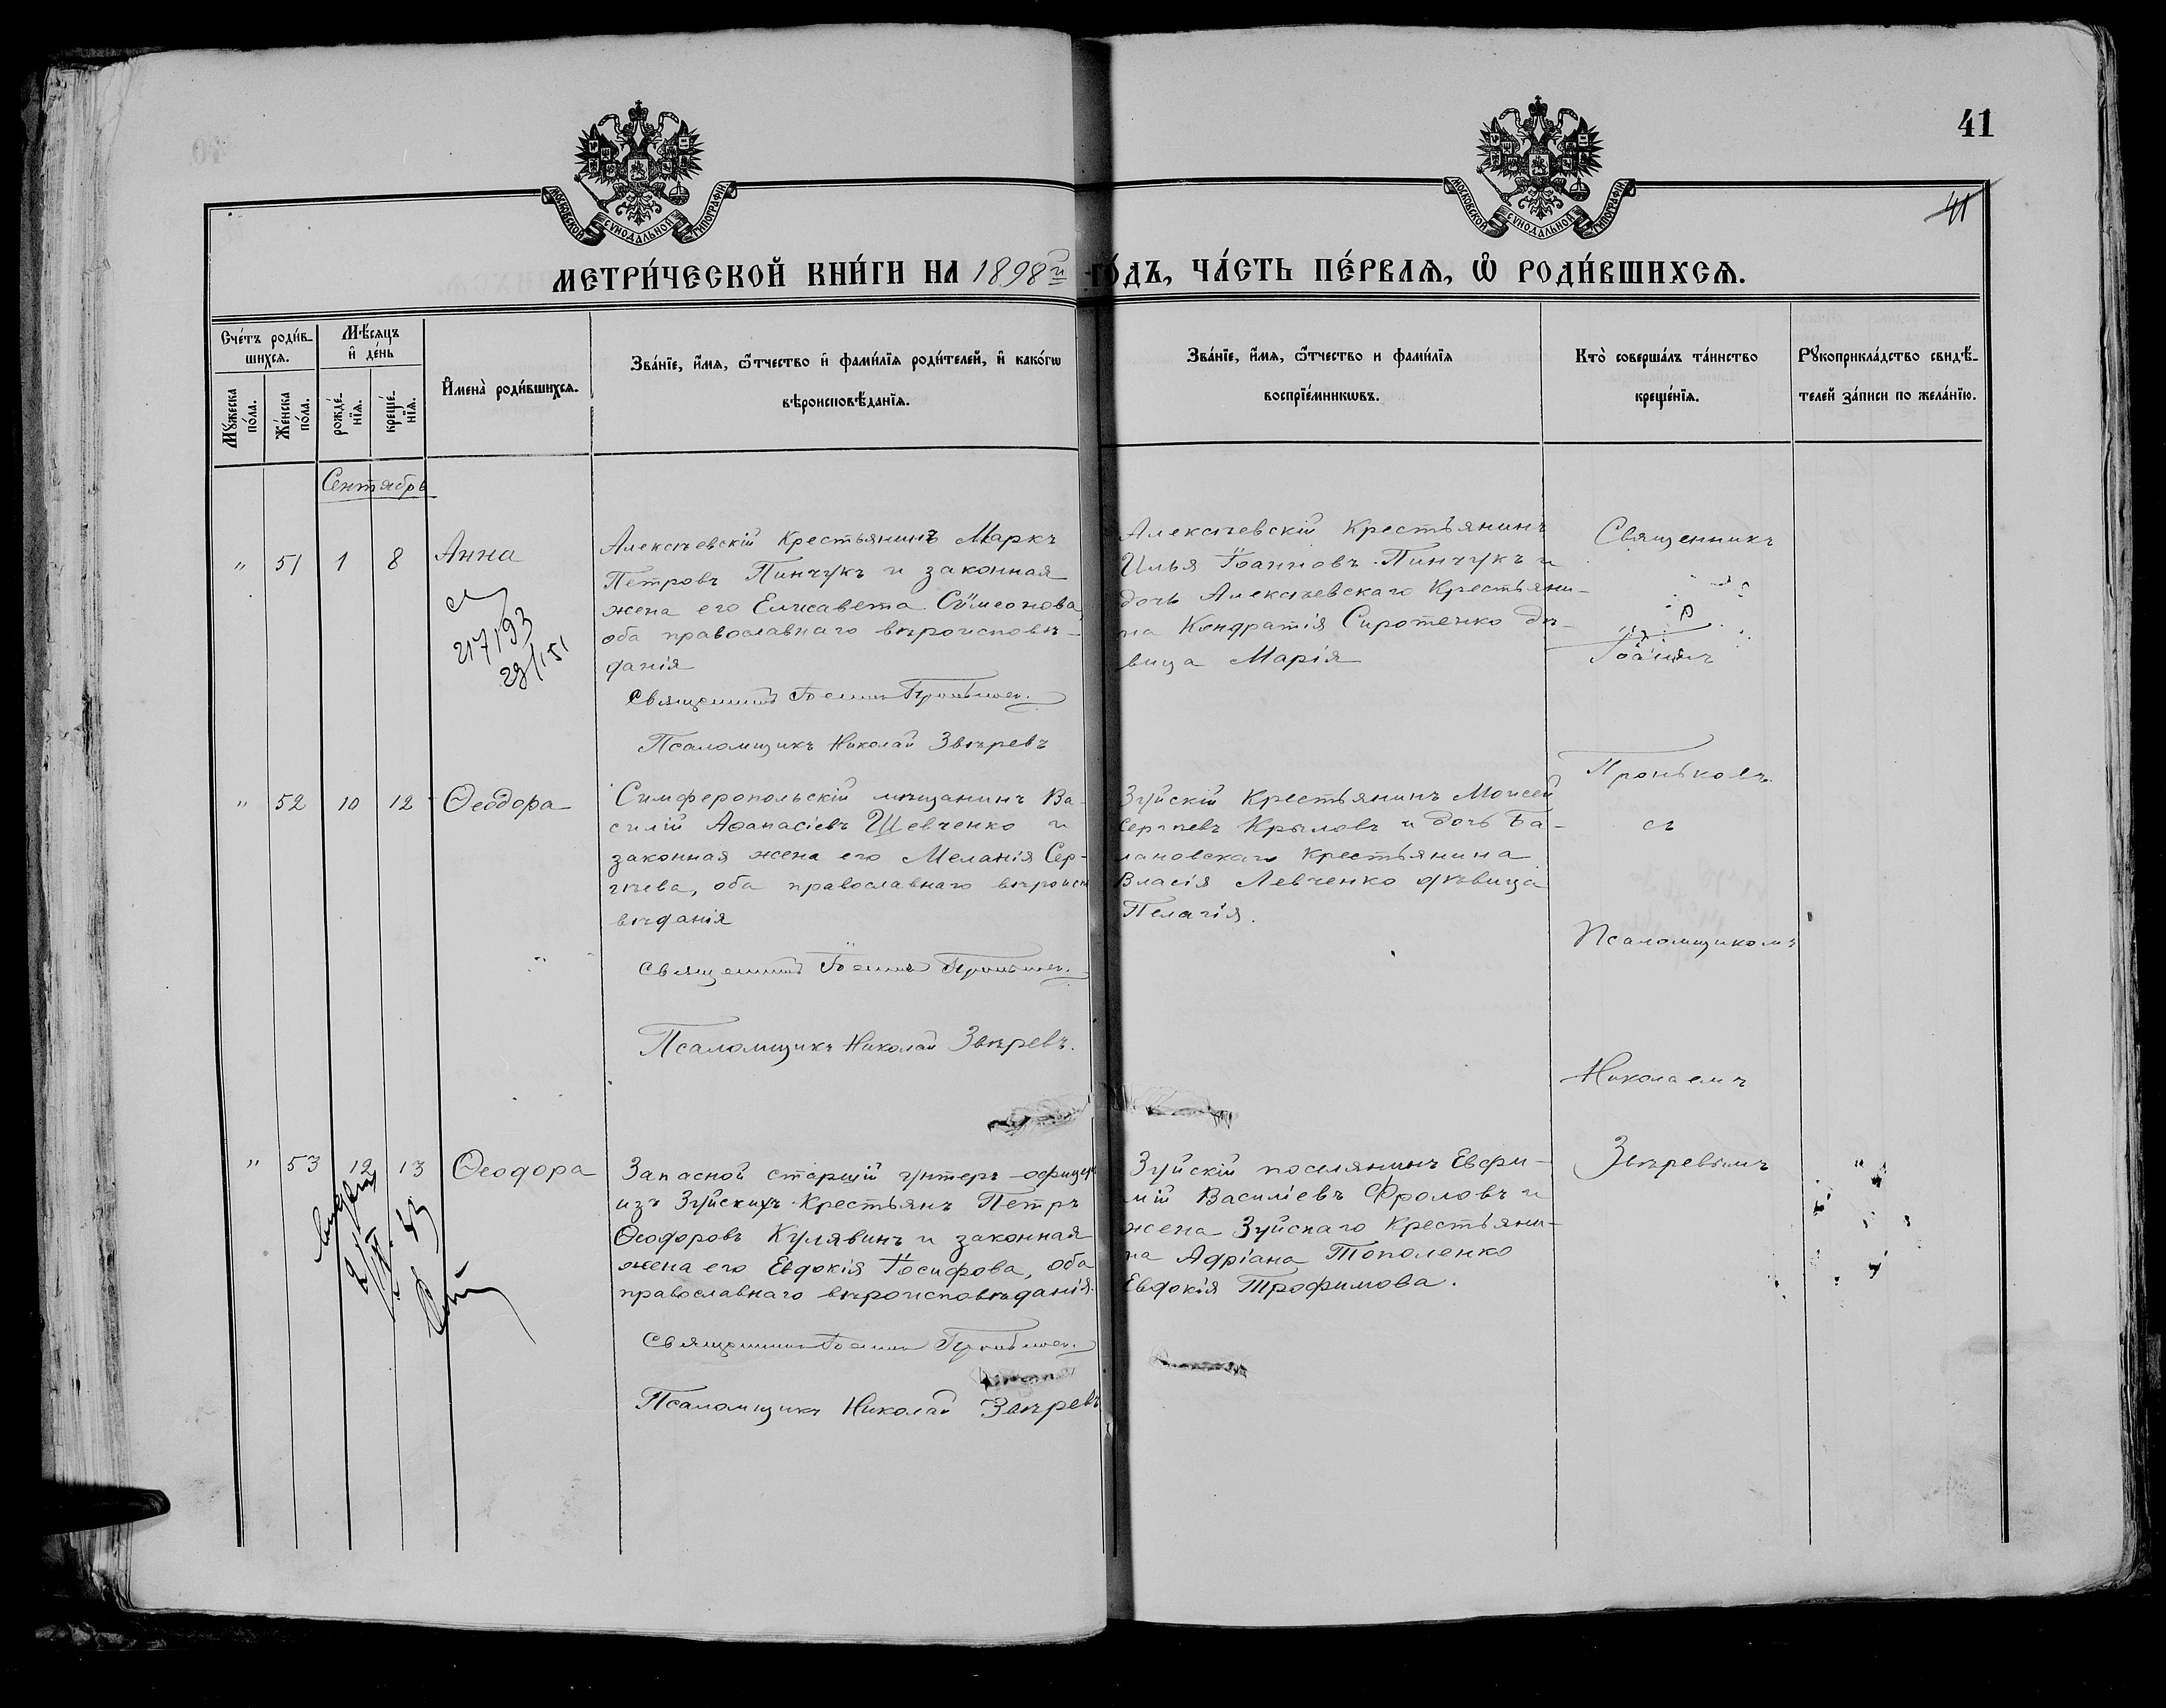 41
41
МОСКОВСКОЙ СѴНОДАЛЬНОЙ ТИПОГРАФІИ
МОСКОВСКОЙ СѴНОДАЛЬНОЙ ТИПОГРАФІИ
МЕТРИ́ЧЕСКОЙ КНИ́ГИ НА 1898й ГО́ДЪ, ЧА́СТЬ ПЕ́РВАѦ, Ѽ РОДИ́ВШИХСѦ.
Сче́тъ роди́в-
шихсѧ.
Мꙋ́жеска
по́ла.
Же́нска
по́ла.
Мѣ́сѧцъ
и҆ де́нь
рожде́-
нїѧ.
креще́-
нїѧ.
И҆мена̀ роди́вшихсѧ.
Зва́нїе, и҆́мѧ, ѻ҆́тчество и҆ фами́лїѧ роди́телей, и҆ како́гѡ
вѣроисповѣ́данїѧ.
Зва́нїе, и҆́мѧ, ѻ҆́тчество и фами́лїѧ
воспрїе́мникѡвъ.
Кто̀ соверша́лъ та́инство
креще́нїѧ.
Рꙋкоприкла́дство свидѣ́-
телей за́писи по жела́нїю.
Сентябрь
" 51 1 8 Анна
Алексѣевскій Крестьянинъ Маркъ
Петровъ Пинчукъ и законная
жена его Елисавета Сѷмеонова,
оба православнаго вѣроисповѣ-
данія
Священникъ Іоаннъ Проньковъ.
Псаломщикъ Николай Звѣревъ
Алексѣевскій Крестьянинъ
Илья Іоанновъ Пинчукъ и
дочь Алексѣевскаго Крестьяни-
на Кондратія Сиротенко дѣ-
вица Марія
Священникъ
Іоаннъ
Проньковъ
съ
Псаломщикомъ
Николаемъ
Звѣревымъ
217/93
28/151
" 52 10 12 Ѳеодора
Симферопольскій мѣщанинъ Ва-
силій Аѳанасіевъ Шевченко и
законная жена его Меланія Сер-
гѣева, оба православнаго вѣроиспо
вѣданія
Священникъ Іоаннъ Проньковъ.
Псаломщикъ Николай Звѣревъ.
Зуйскій Крестьянинъ Моисей
Сергѣевъ Крыловъ и дочь Ба-
лановскаго Крестьянина
Власія Левченко дѣвица
Пелагія.
" 53 12 13 Ѳеодора
Запасной старшій унтеръ-офицеръ
изъ Зуйскихъ Крестьянъ Петръ
Ѳеодоровъ Кулявинъ и законная
жена его Евдокія Іосифова, оба
православнаго вѣроисповѣданія.
Священникъ Іоаннъ Проньковъ.
Псаломщикъ Николай Звѣревъ
Зуйскій поселянинъ Евфи-
мій Василіевъ Фроловъ и
жена Зуйскаго Крестьяни-
на Адріана Тополенко
Евдокія Трофимова.